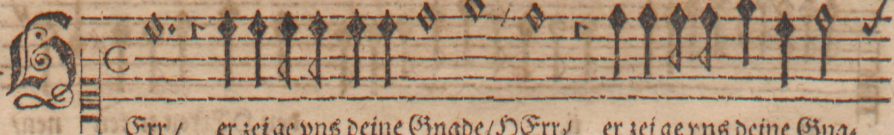 HErr / er zei ge vns deine Gnade / HErr / er zei ge vns deine Gna⸗